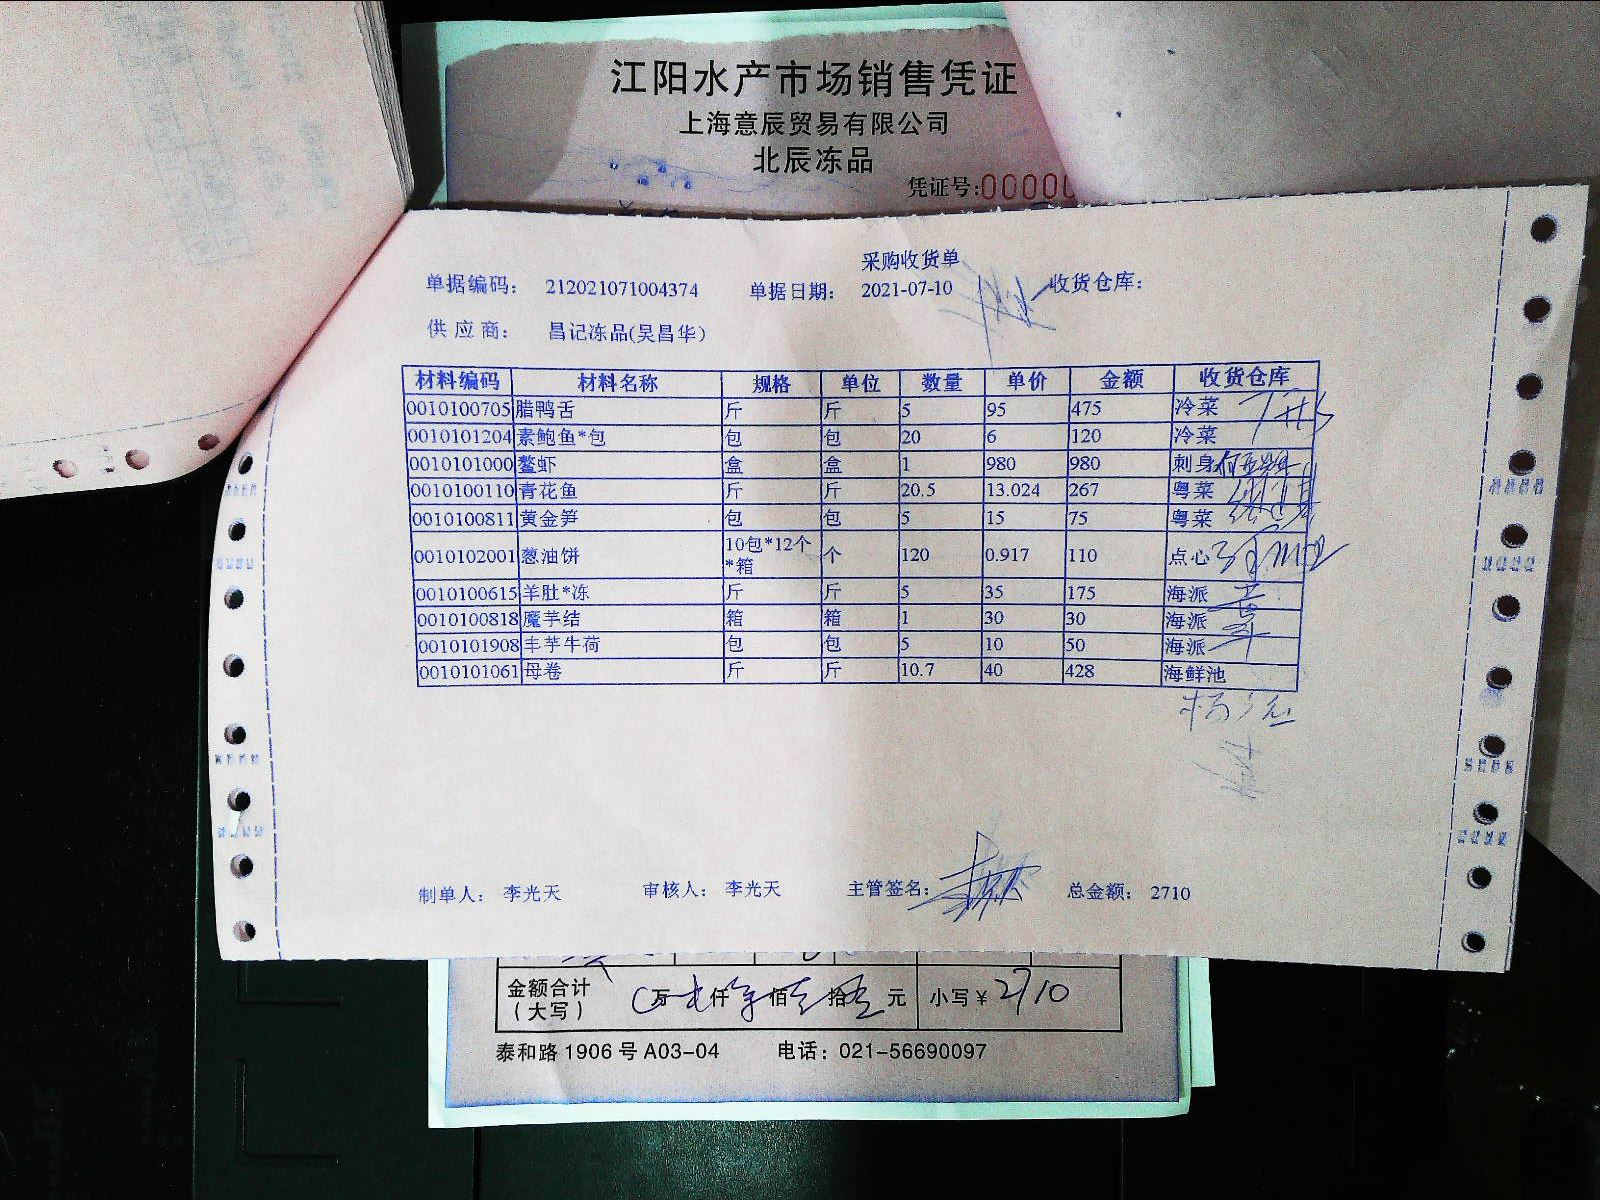 江阳水产市场销售凭证
上海意辰贸易有限公司
北辰冻品
凭证号:00000
采购收货单
单据编码: 212021071004374 单据日期: 2021-07-10 收货仓库:
供应商: 昌记冻品(吴昌华)
材料编码 材料名称 规格 单位 数量 单价 金额 收货仓库
0010100705 腊鸭舌 斤 斤 5 95 475 冷菜
0010101204 素鲍鱼*包 包 包 20 6 120 冷菜
0010101000 鳌虾 盒 盒 1 980 980 刺身
0010100110 青花鱼 斤 斤 20.5 13.024 267 粤菜
0010100811 黄金笋 包 包 5 15 75 粤菜
0010102001 葱油饼 10包*12个*箱 个 120 0.917 110 点心
0010100615 羊肚*冻 斤 斤 5 35 175 海派
0010100818 魔芋结 箱 箱 1 30 30 海派
0010101908 丰芋牛荷 包 包 5 10 50 海派
0010101061 母卷 斤 斤 10.7 40 428 海鲜池
制单人: 李光天 审核人: 李光天 主管签名: 总金额: 2710
金额合计 万 仟 佰 拾 元 小写¥ 2710
(大写)
泰和路1906号A03-04 电话: 021-56690097